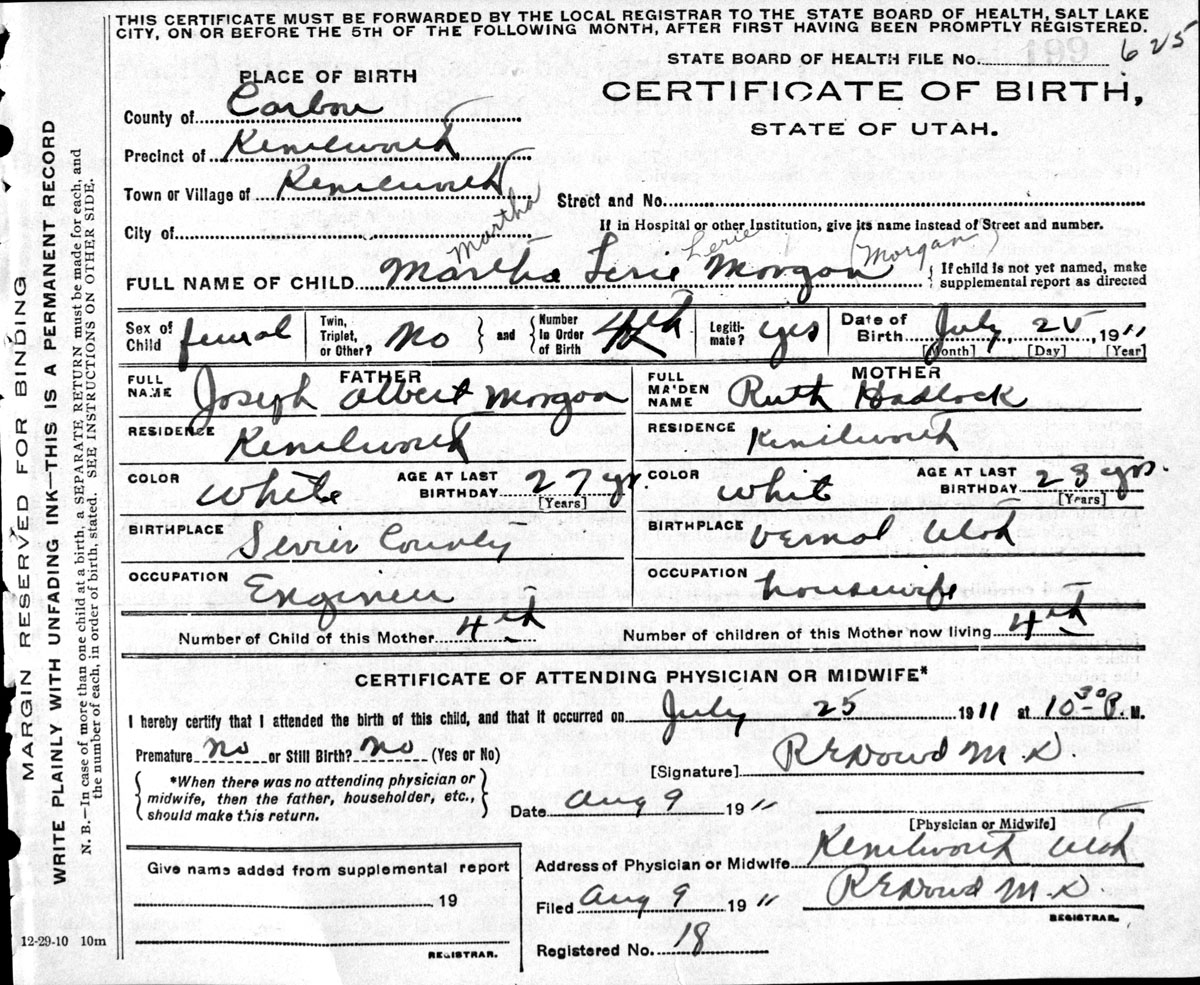 THIS CERTIFICATE MUST BE FORWARDED BY THE LOCAL REGISTRAR TO THE STATE BOARD OF HEALTH, SALT LAKE
CITY, ON OR BEFORE THE 5TH OF THE FOLLOWING MONTH, AFTER FIRST HAVING BEEN PROMPTLY REGISTERED.
STATE BOARD OF HEALTH FILE No. 625
PLACE OF BIRTH
CERTIFICATE OF BIRTH,
STATE OF UTAH.
County of Carbon
Precinct of Kenilworth
Town or Village of Kenilworth
Street and No.
City of
If in Hospital or other Institution, give its name instead of Street and number.
Martha Lerie (Morgan)
FULL NAME OF CHILD Martha Lerie Morgan { If child is not yet named, make
supplemental report as directed
Sex of Child femal Twin, Triplet, or Other? No } and { Number In Order of Birth 4th Legiti-mate? yes Date of Birth July, 25, 1911
[Month] [Day] [Year]
FATHER
FULL NAME Joseph Albert Morgan
RESIDENCE Kenilworth
COLOR White AGE AT LAST BIRTHDAY 27 yr.
[Years]
BIRTHPLACE Sevier County
OCCUPATION Engineer
MOTHER
FULL MAIDEN NAME Ruth Hadlock
RESIDENCE Kenilworth
COLOR Whit AGE AT LAST BIRTHDAY 23 yrs.
[Years]
BIRTHPLACE Vernal Utah
OCCUPATION housewife
Number of Child of this Mother 4th Number of children of this Mother now living 4th
CERTIFICATE OF ATTENDING PHYSICIAN OR MIDWIFE*
I hereby certify that I attended the birth of this child, and that it occurred on July 25 1911 at 10 30 P. M.
Premature no or Still Birth? no (Yes or No)
[Signature] R E Dowd M. D.
{ *When there was no attending physician or
midwife, then the father, householder, etc.,
should make this return. }
Date Aug 9 19 11
[Physician or Midwife]
Address of Physician or Midwife Kenilworth Utah
Filed Aug 9 19 11 R E Dowd M. D.
REGISTRAR.
Registered No. 18
Give name added from supplemental report
19
REGISTRAR.
12-29-10 10m
MARGIN RESERVED FOR BINDING
WRITE PLAINLY WITH UNFADING INK—THIS IS A PERMANENT RECORD
N. B.—In case of more than one child at a birth, a SEPARATE RETURN must be made for each, and
the number of each, in order of birth, stated. SEE INSTRUCTIONS ON OTHER SIDE.